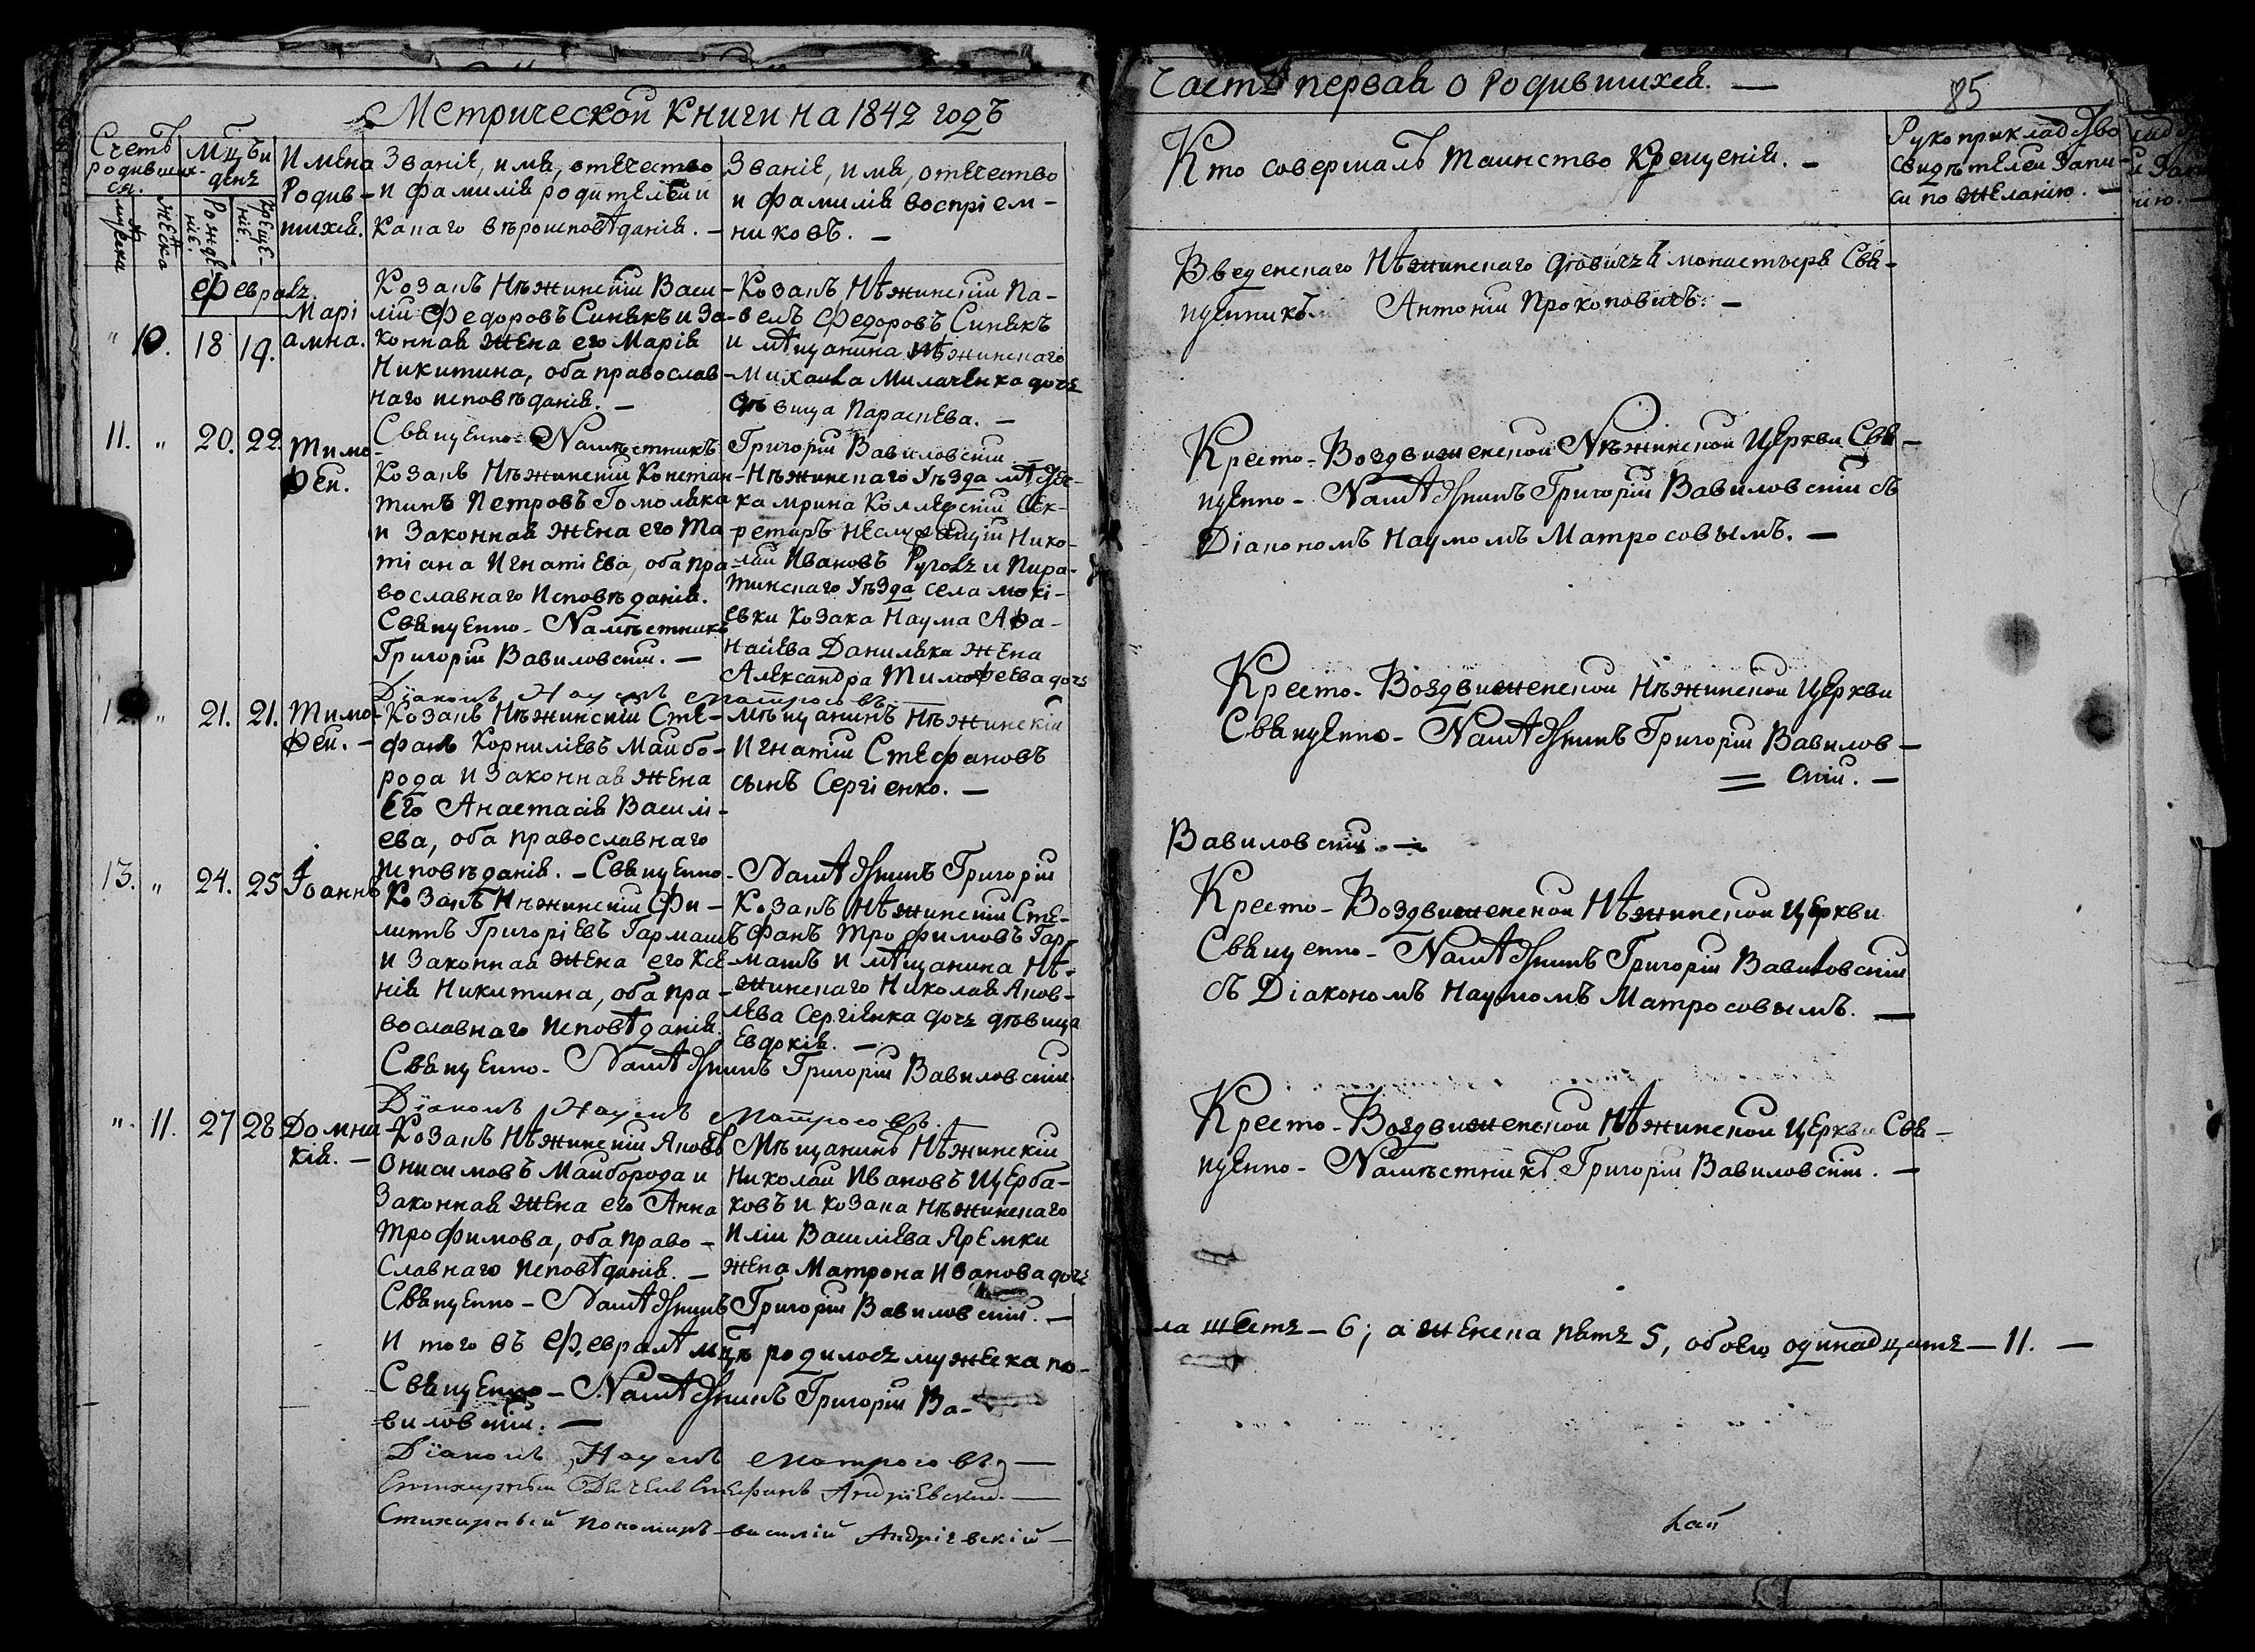 Метрической Книги на 1842 годъ
Счетъ родивших-
ся.
Мцъ и
день
Имена
Родив-
шихся.
Званіе, имя, отечество
и фамилія родителей и
какаго вѣроисповѣданія. —
Званіе, имя, отечество
и фамилія воспріем-
никовъ. —
мужска
женска
Рожде-
ніе.
Креще-
ніе.
февраль
" 10. 18 19.
Марі
амна.
Козакъ Нѣжинскій Васи-
лій Федоровъ Синякъ и За-
конная жена его Марія
Никитина, оба православ-
наго исповѣданія. —
Козакъ Нѣжинскій Па-
велъ Федоровъ Синякъ
и мѣщанина Нѣжинскаго
Михаила Милаченка дочь
дѣвица Параскева. —
Священно-Намѣстникъ Григорій Вавиловскій —
11. " 20. 22.
Тимо-
фей.
Козакъ Нѣжинскій Констан-
тинъ Петровъ Гомоляка
и Законная жена его Та-
тіана Игнатіева, оба пра-
вославнаго Исповѣданія.
Священно-Намѣстникъ
Григорій Вавиловскій. —
Нѣжинскаго Уѣзда
Коллежскій Сек-
ретарь Неслужащій Нико-
лай Ивановъ Руголь и Пиря-
тинскаго Уѣзда села Мокі-
евки Козака Наума Афа-
насіева Даниляка жена
Александра Тимофеева дочь
Діаконъ Наумъ Матросовъ —
12. " 21. 21.
Тимо-
фей. —
Козакъ Нѣжинскій Сте-
фанъ Корниліевъ Майбо-
рода и Законная жена
Его Анастасія Васили-
ева, оба православнаго
исповѣданія. — Священно-Намѣстникъ Григорій
Мѣщанинъ Нѣжинскій
Игнатій Стефановъ
сынъ Сергіенко. —
13. " 24. 25
Іоаннъ
Козакъ Нѣжинскій Фи-
липпъ Григоріевъ Гармашъ
и Законная жена его Ксе-
нія Никитина, оба пра-
вославнаго исповѣданія.
Козакъ Нѣжинскій Сте-
фанъ Трофимовъ Гар-
машъ и мѣщанина Нѣ-
жинскаго Николая Яков-
лева Сергіенка дочь дѣвица
Евдокія. —
Священно-Намѣстникъ Григорій Вавиловскій
Діаконъ Наумъ Матросовъ.
". 11. 27 28
Домни-
кія. —
Козакъ Нѣжинскій Яковъ
Онисимовъ Майборода и
Законная жена его Анна
Трофимова, оба право-
славнаго исповѣданія. —
Мѣщанинъ Нѣжинскій
Николай Ивановъ Щерба-
ковъ и козака Нѣжинскаго
Иліи Василіева Яремки
жена Матрона Иванова дочь
Священно-Намѣстникъ Григорій Вавиловскій. —
И того въ февралѣ мцѣ родилось мужеска по-
Священно-Намѣстникъ Григорій Ва-
виловскій. —
Діаконъ Наумъ Матросовъ —
Стихарный Дячекъ Стефанъ Андріевскій. —
Стихарный Пономарь Василій Андріевскій —
Часть первая о Родившихся. —
85
Кто совершалъ таинство Крещенія. —
Рукоприкладство
свидѣтелей Запи-
си по желанію. —
Введенскаго Нѣжинскаго дѣвичья монастыря Свя-
щенникъ Антоній Прокоповичъ. —
Кресто-Воздвиженской Нѣжинской Церкви Свя-
щенно-Намѣстникъ Григорій Вавиловскій съ
Діакономъ Наумомъ Матросовымъ. —
Кресто-Воздвиженской Нѣжинской Церкви
Священно-Намѣстникъ Григорій Вавилов-
скій. —
Вавиловскій. —
Кресто-Воздвиженской Нѣжинской Церкви
Священно-Намѣстникъ Григорій Вавиловскій
съ Діакономъ Наумомъ Матросовымъ. —
Кресто-Воздвиженской Нѣжинской Церкви Свя-
щенно-Намѣстникъ Григорій Вавиловскій. —
ла шесть — 6; а женска пять 5, обоего одинадцать — 11. —